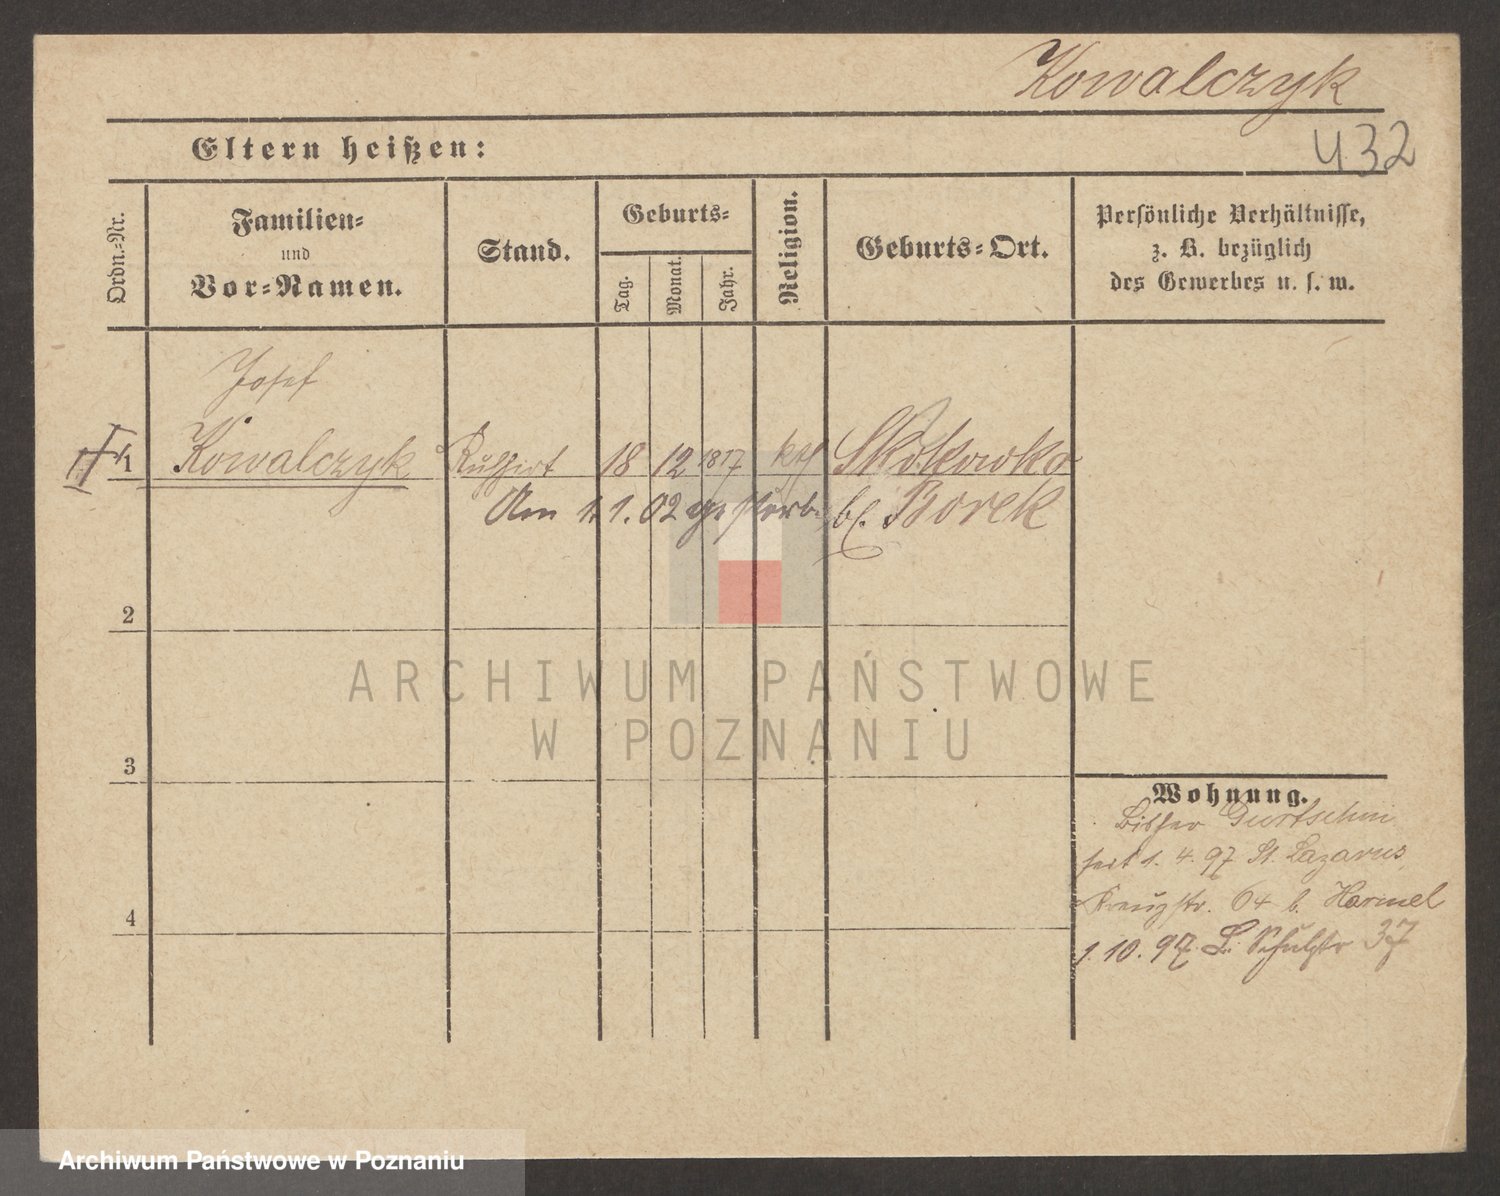 Kowalczyk
432
Eltern heißen:
Ordn.-Nr.
Familien-
und
Vor-Namen.
Stand.
Geburts-
Tag.
Monat.
Jahr.
Religion.
Geburts-Ort.
Persönliche Verhältnisse,
z. B. bezüglich
des Gewerbes u. s. w.
Josef
1 Kowalczyk 18 12 1817 kth Skokowko
Am 1.1.02 gestorben bf. Borek
2
3
4
Wohnung.
Bisher Gurtschin
seit 1. 4. 97 St. Lazarus
Kreuzstr. 64 b. Harmel
1. 10. 97 L. Schulstr 37
ARCHIWUM PAŃSTWOWE
W POZNANIU
Archiwum Państwowe w Poznaniu